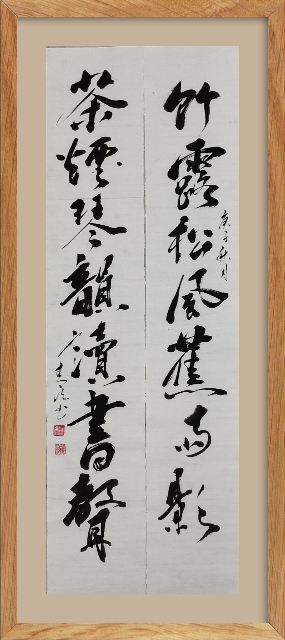 竹露松風蕉雨影
庚子秋月
茶煙琴韻讀書聲